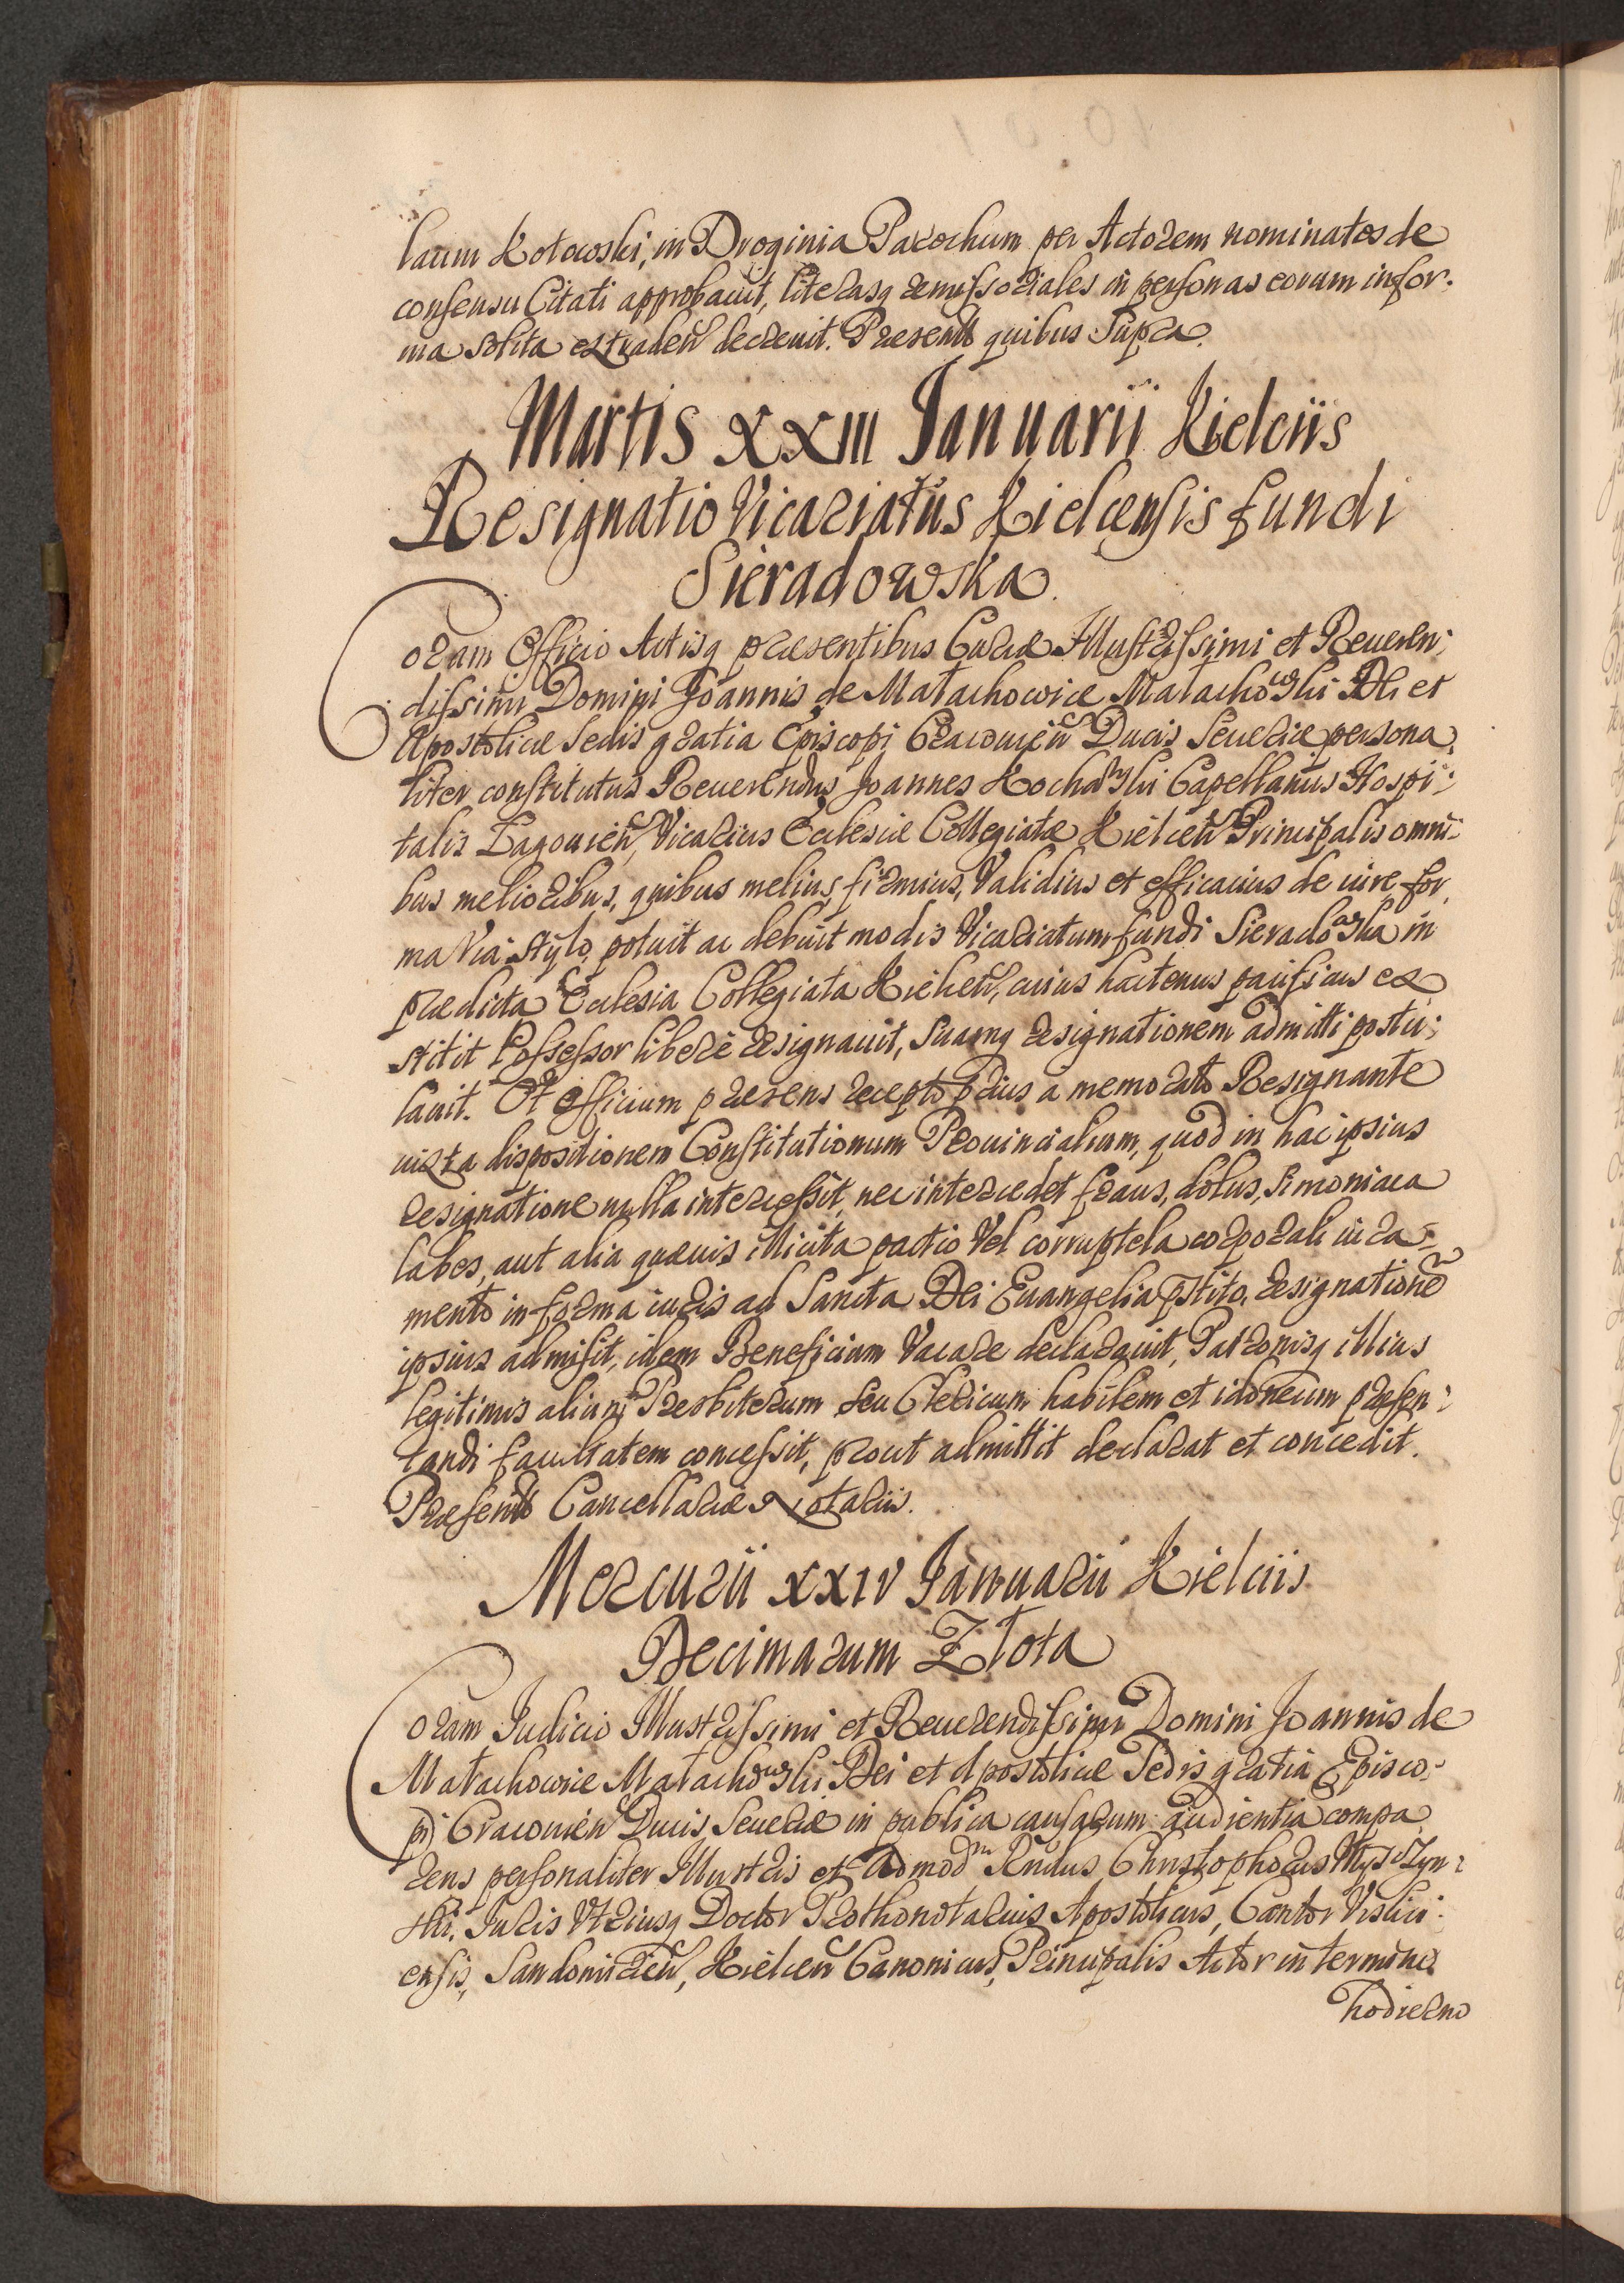 laum Kotowski, in Droginia Parochum per Actorem nominatos de
consensu Citati approbauit, literasq remissoriales in personas eorum infor-
ma solita extraden decreuit. Praesent quibus Supra.
Martis XXIII Januarii Kielciis
Resignatio Vicariatus Kielcensis fundi
Sieradowska
Coram Officio Actisq praesentibus Curae Illustrissimi et Reueren:
dissimi Domini Joannis de Małachowice Małachowski Dei et
Apostolicae Sedis gratia Episcopi Cracouien Ducis Seueriae persona,
liter constitutus Reuerendus Joannes Kochański Capellanus Hospi:
talis Łagouien, Vicarius Ecclesiae Collegiatae Kielcen Principalis omni-
bus melioribus, quibus melius, firmius, Validius et efficacius de iure for,
ma Via Stylo, potuit ac debuit modis Vicariatum fundi Sieradowska in
praedicta Ecclesia Collegiata Kielcen, cuius hactenus pacificus ex
stitit Possessor libere resignauit, Suamq resignationem admitti postu:
lauit. Et Officium praesens recepto prius a memorato Resignante
iuxta dispositionem Constitutionum Prouincialium, quod in hac ipsius
resignatione nulla intercessit, nec intercedet fraus, dolus, Simoniaca
labes, aut alia quaeuis illicita pactio Vel corruptela corporali iura-
mento in forma iuris ad Sancta Dei Euangelia pstito, resignatione
ipsius admisit, idem Beneficium Vacare declarauit, Patronisq illius
legitimis alium Presbiterum seu Clericum habilem et idoneum praesen:
tandi facultatem concessit, prout admittit declarat et concedit.
Praesent Cancellariae Notariis.
Mercurii XXIV Januarii Kielciis
Decimarum Złota
Coram Judicio Illustrissimi et Reuerendissimi Domini Joannis de
Małachowice Małachowski Dei et Apostolicae Sedis gratia Episco-
pi Cracouien Ducis Seueriae in publica causarum audientia compa,
rens personaliter Illustris et Admodm Rndus Christophorus
ski, Juris Vtriusq Doctor Prothonotarius Apostolicus, Cantor Vislici:
ensis, Sandomirien, Kielcen Canonicus, Principalis Actor in termino
hodierno